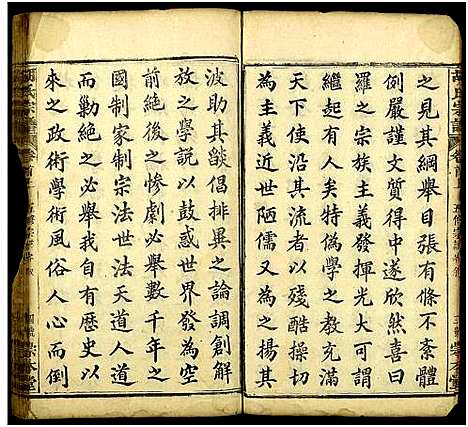 之見其綱舉目張有條不紊體
例嚴謹文質得中遂欣然喜曰
羅之宗族主義發揮光大可謂
繼起有人矣特偽學之教充滿
寰區舊道德之遺殘酷操切
為主義近世陋儒或為之揚其
波助其燄倡排異之論調創解
放之學說以鼓惑世界發為空
前絕後之慘劇必舉數千年之
國制家制宗法世法天道人道
而勦絕之必舉我自有歷史以
來之政術學術風俗人心而倒
胡氏宗譜